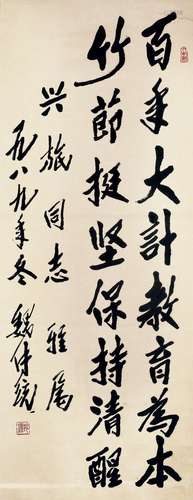 百年大計教育為本
竹節挺坚保持清醒
兴旅同志雅属
一九八九年冬
魏传统